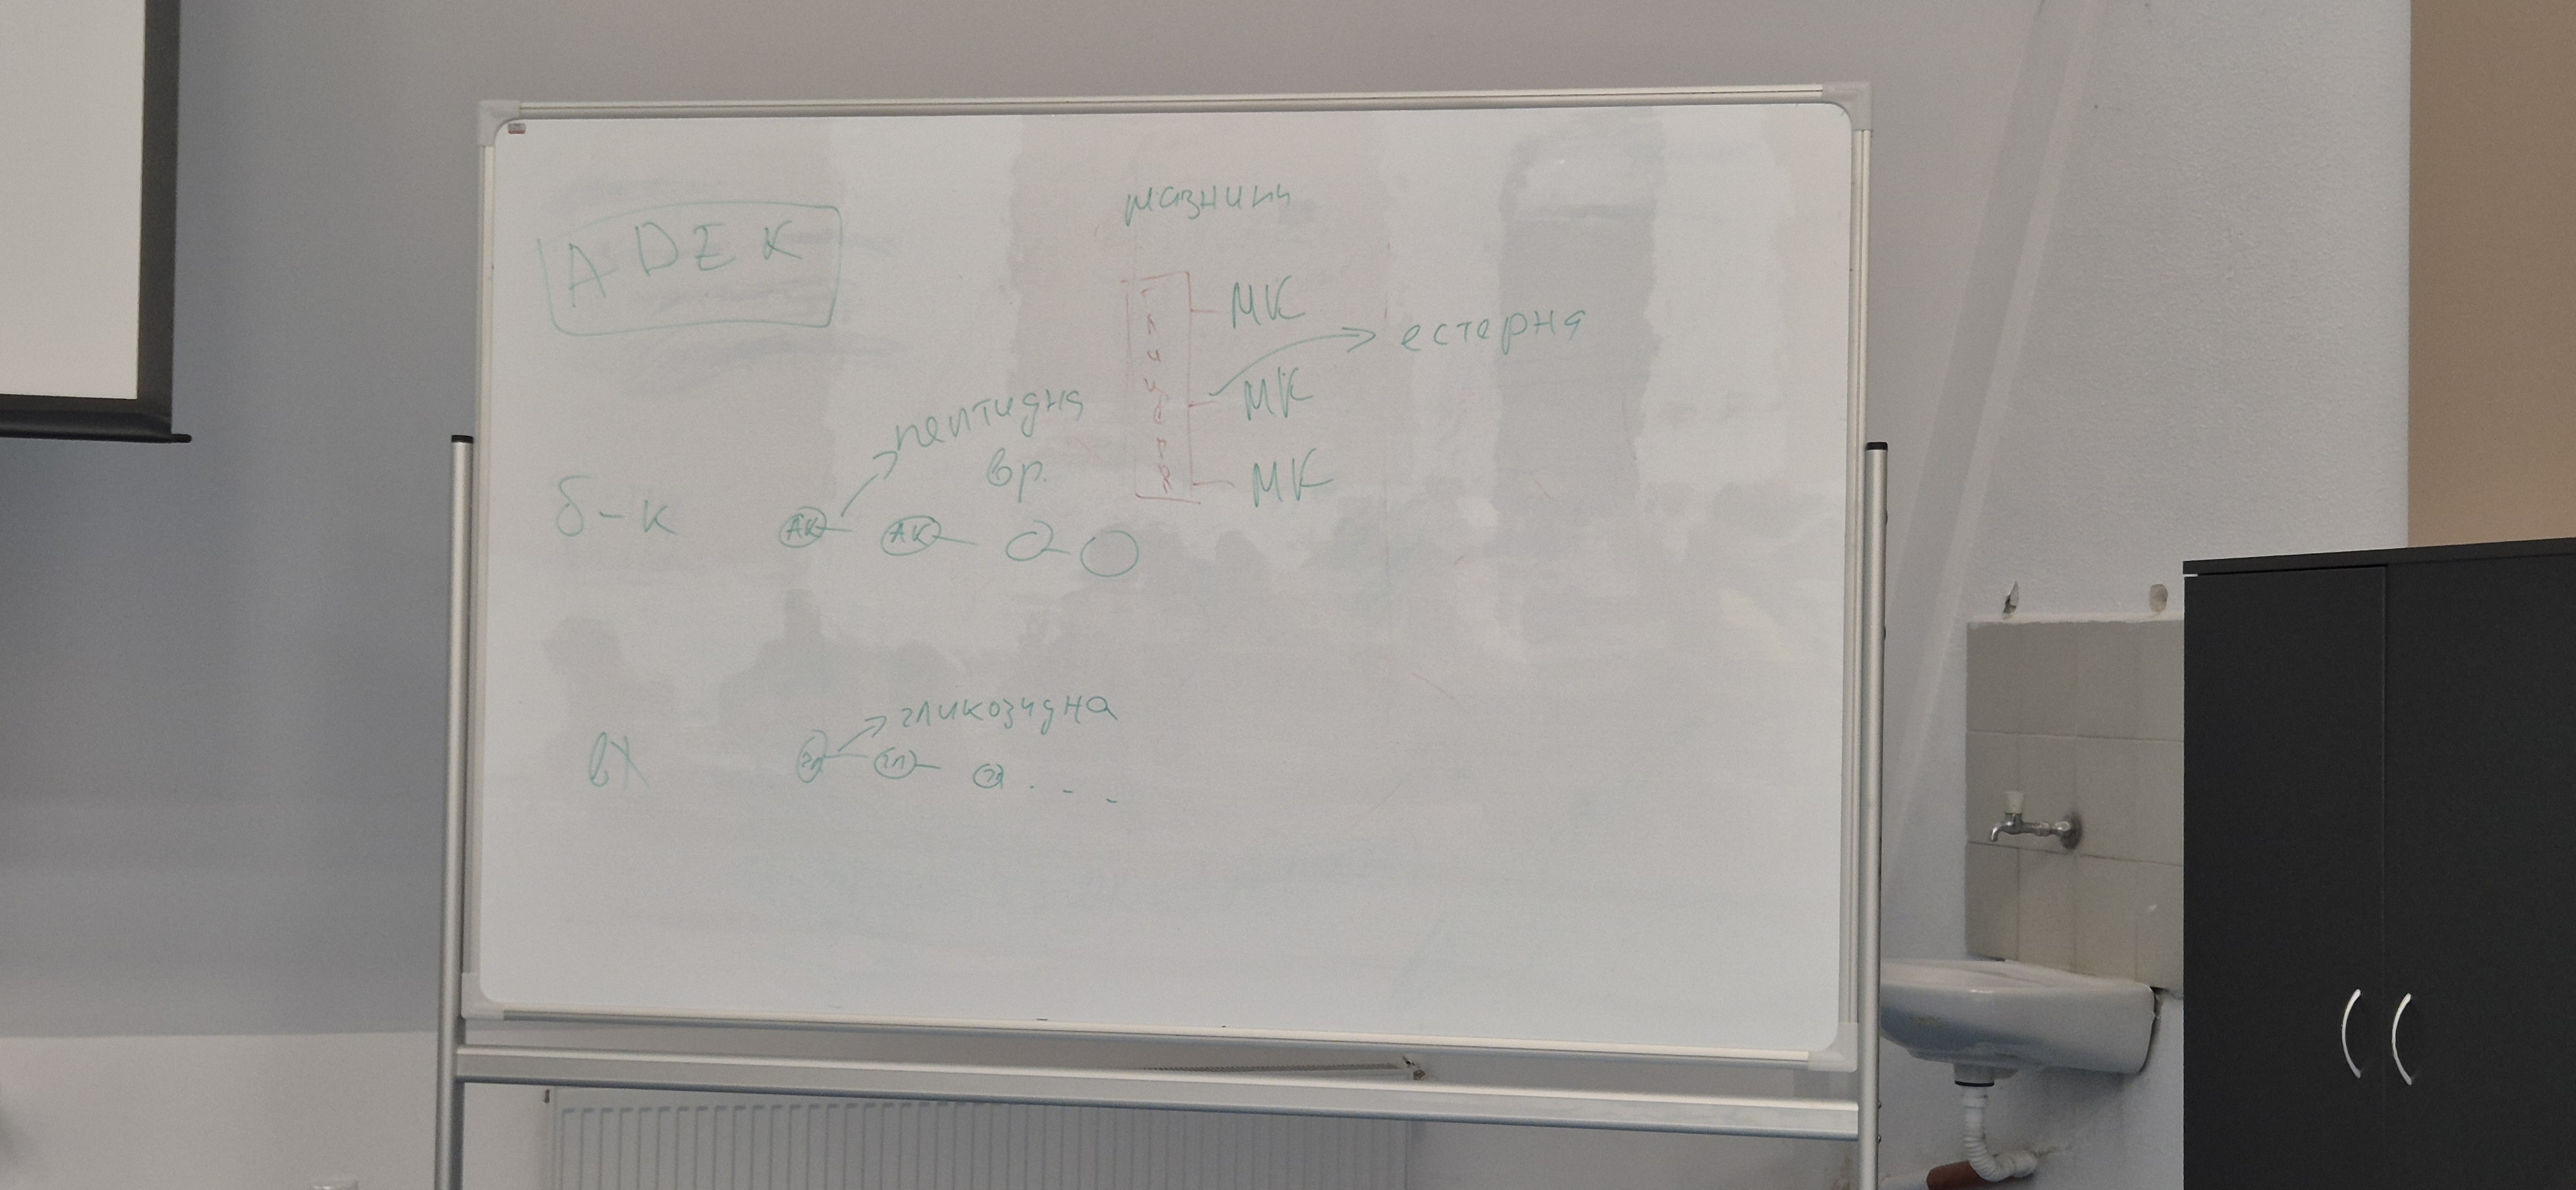 ADEK
мазнини
глицерол
МК
МК
МК
естерня
пептидня
вр.
б-к
АК АК
гликозидна
вх
гл гл гл . . .